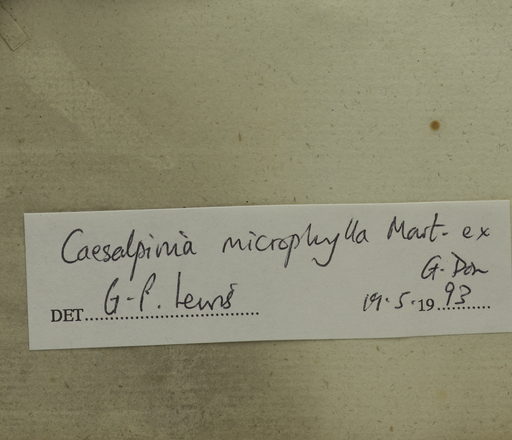 Caesalpinia microphylla Mart. ex
G. Don
DET. G.P. Lewis 19.5.1993